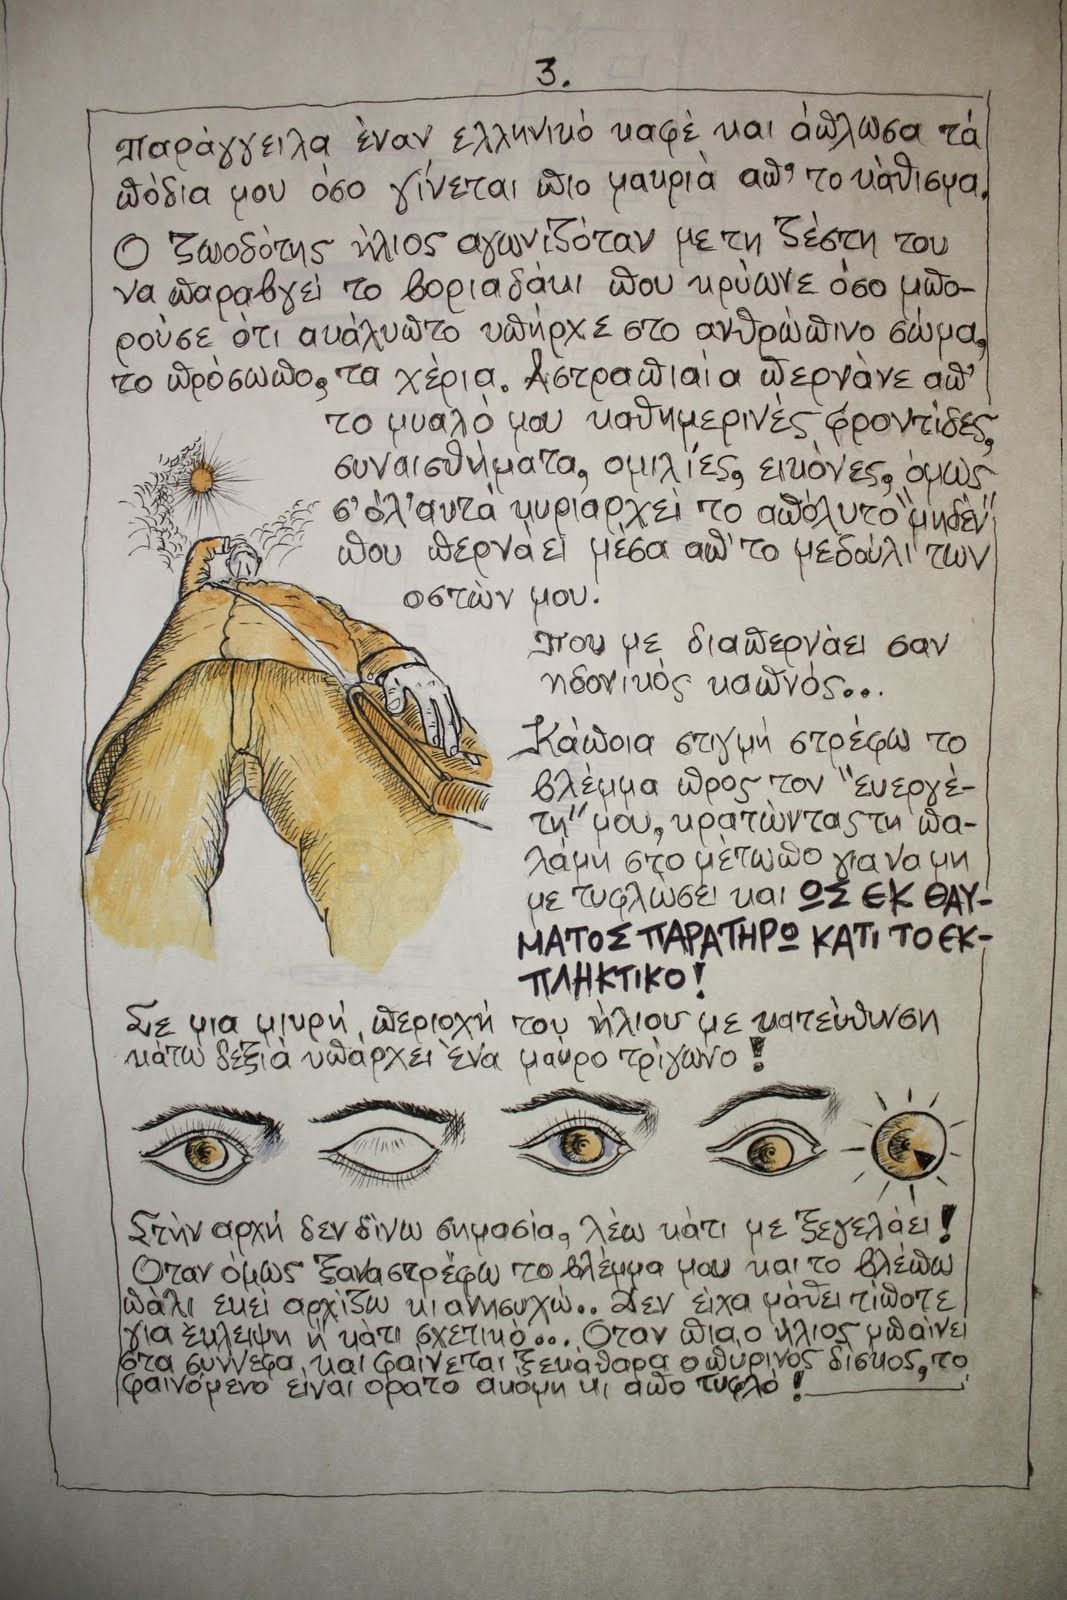 3.
Παράγγειλα έναν ελληνικό καφέ και άπλωσα τά
πόδια μου όσο γίνεται πιο μακριά απ' το κάθισμα.
Ο ζωοδότης ήλιος αγωνιζόταν με τη ζέστη του
να παραβγεί το βοριαδάκι που κρύωνε όσο μπο-
ρούσε ότι ακάλυπτο υπήρχε στο ανθρώπινο σώμα,
το πρόσωπο, τα χέρια. Αστραπιαία περνάνε απ'
το μυαλό μου καθημερινές φροντίδες,
συναισθήματα, ομιλίες, εικόνες, όμως
σ' όλ' αυτά κυριαρχεί το απόλυτο "μηδέν"
που περνάει μέσα απ' το μεδούλι των
οστών μου.
Που με διαπερνάει σαν
ηδονικός καπνός...
Κάποια στιγμή στρέφω το
βλέμμα προς τον "ευεργέ-
τη" μου, κρατώντας τη πα-
λάμη στο μέτωπο για να μη
με τυφλώσει και ΩΣ ΕΚ ΘΑΥ-
ΜΑΤΟΣ ΠΑΡΑΤΗΡΩ ΚΑΤΙ ΤΟ ΕΚ-
ΠΛΗΚΤΙΚΟ!
Σε μια μικρή, περιοχή του ήλιου με κατεύθυνση
κάτω δεξιά υπάρχει ένα μαύρο τρίγωνο!
Στην αρχή δεν δίνω σημασία, λέω κάτι με ξεγελάει!
Όταν όμως ξαναστρέφω το βλέμμα μου και το βλέπω
πάλι εκεί αρχίζω κι ανησυχώ.. Δεν είχα μάθει τίποτε
για έκλειψη ή κάτι σχετικό... Όταν πια ο ήλιος μπαίνει
στα σύννεφα, και φαίνεται ξεκάθαρα ο πύρινος δίσκος, το
φαινόμενο είναι ορατό ακόμη κι από τυφλό!